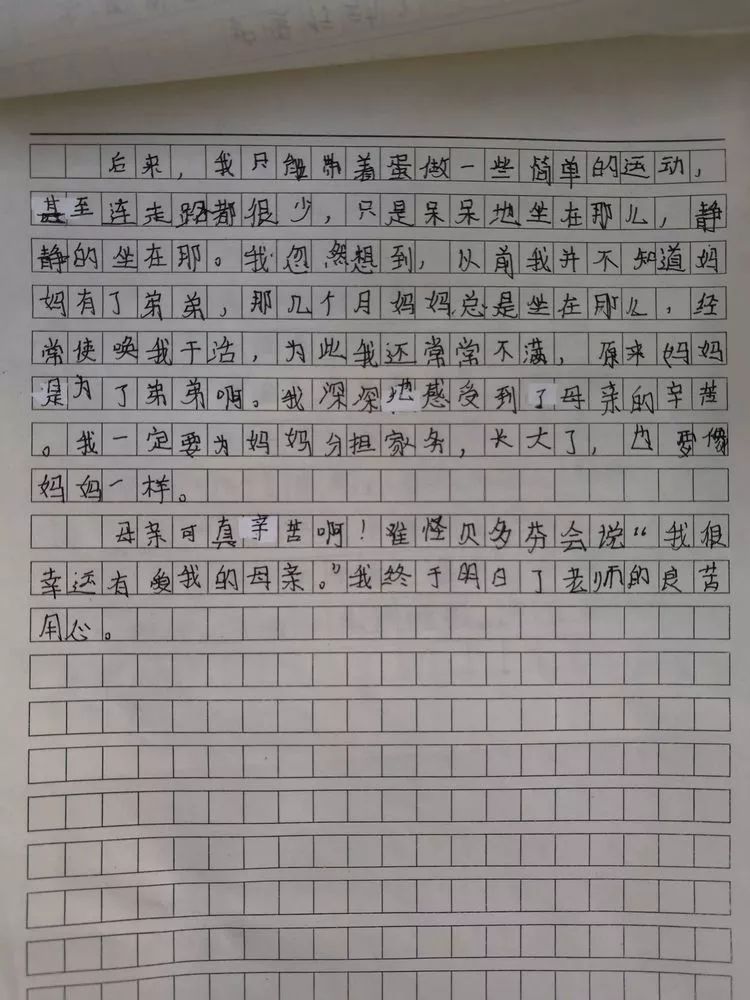 后来，我只能带着蛋做一些简单的运动，
甚至连走路都很少，只是呆呆地坐在那儿，静
静的坐在那。我忽然想到，以前我并不知道妈
妈有了弟弟，那几个月妈妈总是坐在那儿，经
常使唤我干活，为此我还常常不满，原来妈妈
是为了弟弟啊。我深深地感受到了母亲的辛苦
。我一定要为妈妈分担家务，长大了，也要像
妈妈一样。
母亲可真辛苦啊！难怪贝多芬会说“我很
幸运有爱我的母亲。”我终于明白了老师的良苦
用心。